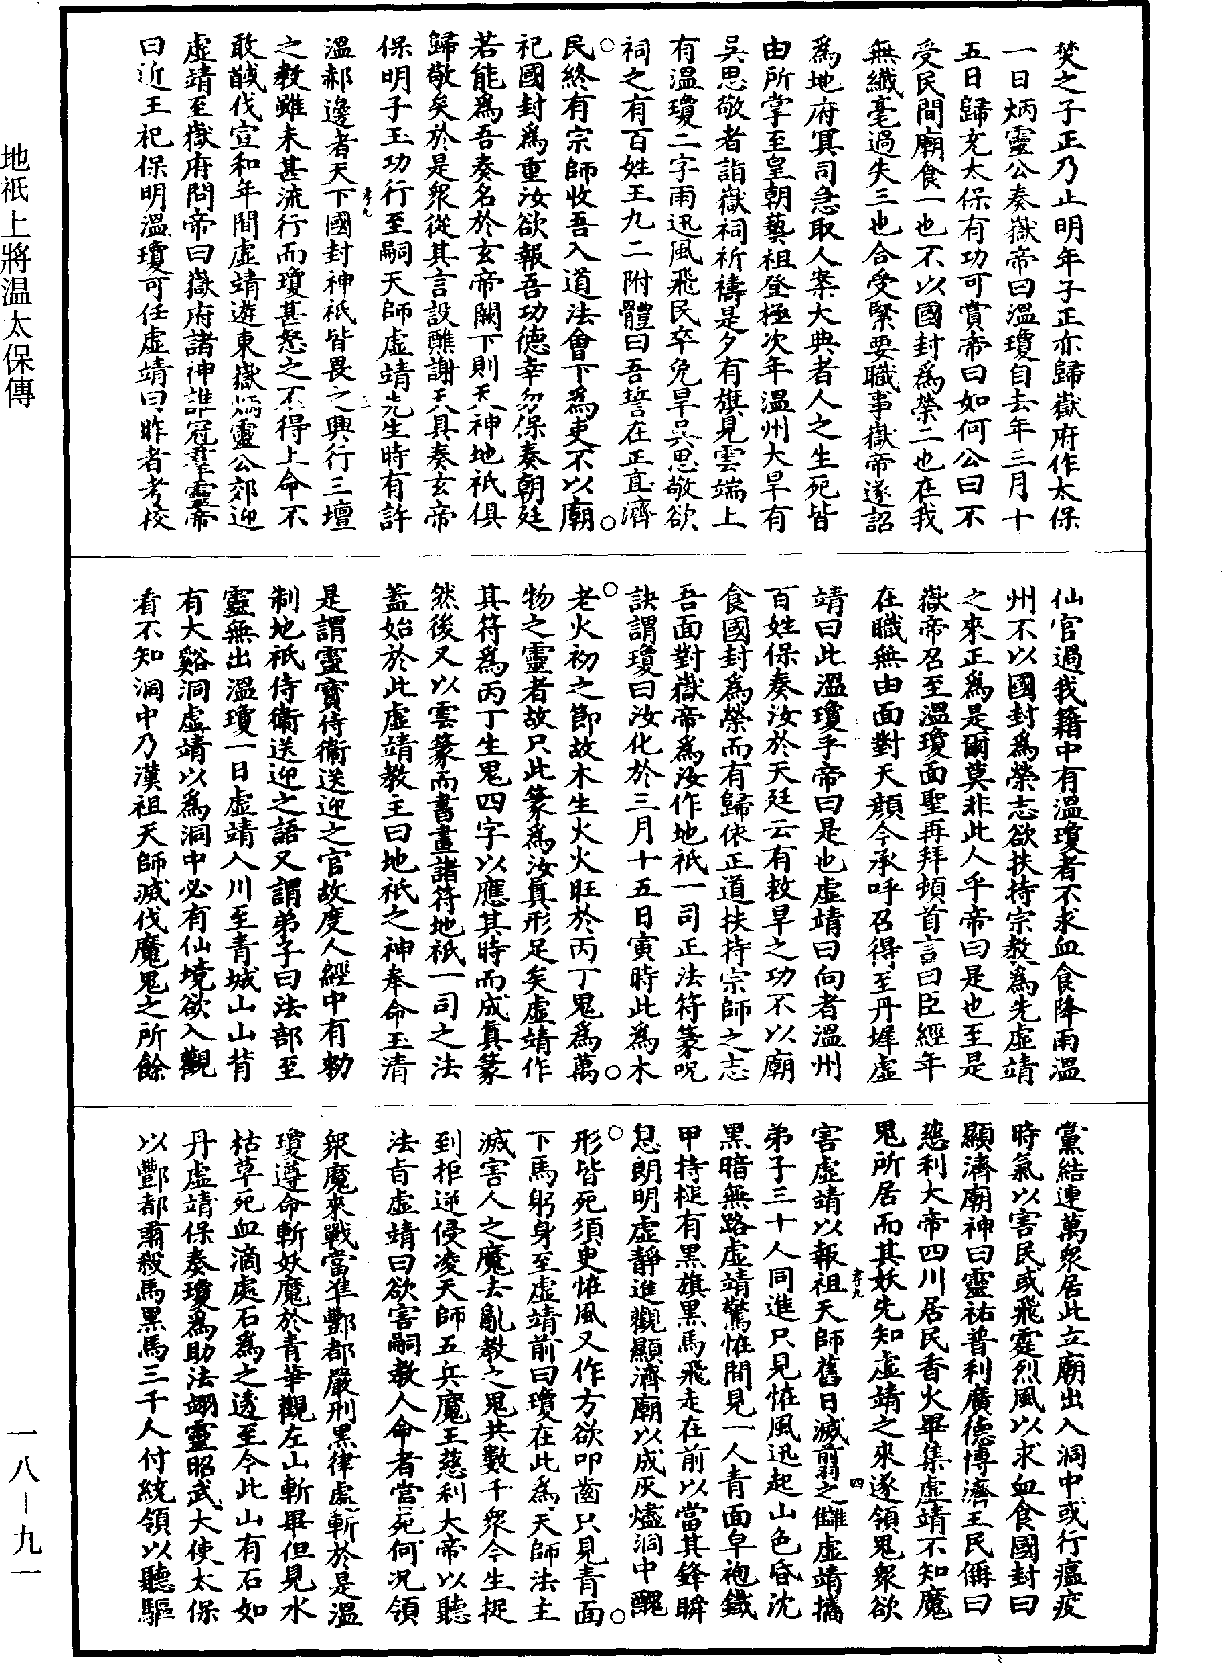 地祇上將溫太保傳
焚之子正乃止明年子正亦歸嶽府作太保
一日炳靈公奏嶽帝曰溫瓊自去年三月十
五日歸充太保有功可賞帝曰如何公曰不
受民間廟食一也不以國封爲榮二也在我
無纖毫過失三也合受緊要職事嶽帝遂詔
爲地府冥司急取人案大典者人之生死皆
由所掌至皇朝藝祖登極次年溫州大旱有
吳思敬者詣嶽祠祈禱是夕有旗見雲端上
有溫瓊二字雨迅風飛民卒免旱吳思敬欲
祠之有百姓王九二附體曰吾誓在正直濟
民終有宗師收吾入道法會下爲吏不以廟
祀國封爲重汝欲報吾功德幸勿保奏朝廷
若能爲吾奏名於玄帝闕下則天神地祇俱
歸敬矣於是衆從其言設醮謝天具奏玄帝
保明子玉功行至嗣天師虛靖先生時有許
溫郝邊者天下國封神祇皆畏之興行三壇
之教雖未甚流行而瓊甚怒之不得上命不
敢馘伐宣和年間虛靖遊東嶽炳靈公郊迎
虛靖至嶽府問帝曰嶽府諸神誰冠羣靈帝
曰近王祀保明溫瓊可任虛靖曰昨者考校
仙官過我籍中有溫瓊者不求血食降雨溫
州不以國封爲榮志欲扶持宗教爲先虛靖
之來正爲是爾莫非此人乎帝曰是也至是
嶽帝召至溫瓊面聖再拜頓首言曰臣經年
在職無由面對天顔今承呼召得至丹墀虛
靖曰此溫瓊乎帝曰是也虛靖曰向者溫州
百姓保奏汝於天廷云有救旱之功不以廟
食國封爲榮而有歸依正道扶持宗師之志
吾面對嶽帝爲汝作地祇一司正法符篆呪
訣謂瓊曰汝化於三月十五日寅時此爲木
老火初之節故木生火火旺於丙丁鬼爲萬
物之靈者故只此篆爲汝真形足矣虛靖作
其符爲丙丁生鬼四字以應其時而成真篆
然後又以雲篆而書畫諸符地祇一司之法
蓋始於此虛靖教主曰地祇之神奉命玉清
是謂靈寶侍衛送迎之官故度人經中有勑
制地祇侍衛送迎之語又謂弟子曰法部至
靈無出溫瓊一日虛靖入川至青城山山背
有大谿洞虛靖以爲洞中必有仙境欲入觀
看不知洞中乃漢祖天師滅伐魔鬼之所餘
黨結連萬衆居此立廟出入洞中或行瘟疫
時氣以害民或飛霆烈風以求血食國封曰
顯濟廟神曰靈祐普利廣德博濟王民僞曰
慈利大帝四川居民香火畢集虛靖不知魔
鬼所居而其妖先知虛靖之來遂領鬼衆欲
害虛靖以報祖天師舊日滅翦之讎虛靖攜
弟子三十人同進只見恠風迅起山色昏沈
黑暗無路虛靖驚恠間見一人青面皁袍鐵
甲持槌有黑旗黑馬飛走在前以當其鋒瞬
息朗明虛靜進觀顯濟廟以成灰燼洞中醜
形皆死須臾恠風又作方欲叩齒只見青面
下馬躬身至虛靖前曰瓊在此爲天師法主
滅害人之魔去亂教之鬼共數千衆今生捉
到拒逆侵凌天師五兵魔王慈利大帝以聽
法㫖虛靖曰欲害嗣教人命者當死何况領
衆魔來戰當準酆都嚴刑黑律處斬於是溫
瓊遵命斬妖魔於青華觀左山斬畢但見水
枯草死血滴處石爲之透至今此山有石如
丹虛靖保奏瓊爲助法翊靈昭武大使太保
以酆都肅殺馬黑馬三千人付統領以聽驅
孝九
三
孝九
四
一八－九一